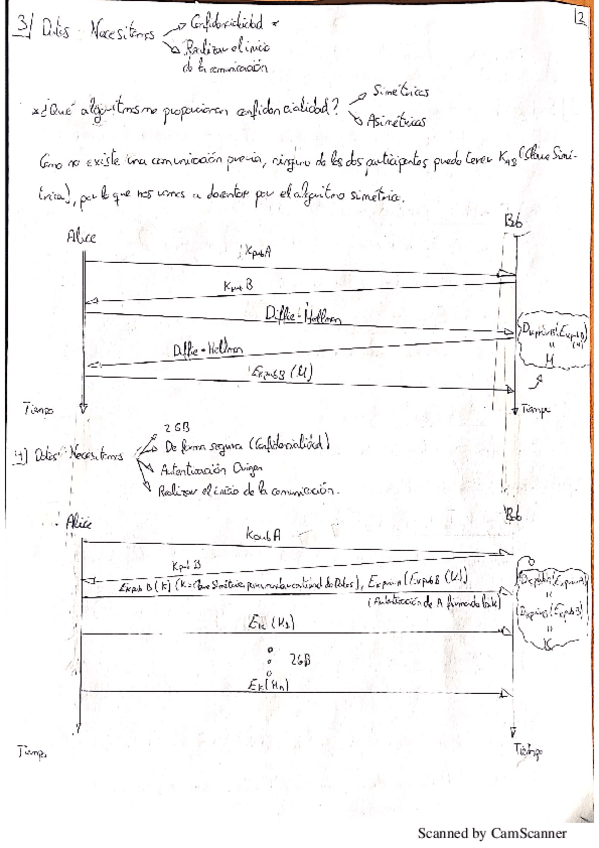 2
3) Datos Necesitamos → Confidencialidad *
→ Realizar el inicio
de la comunicación
*¿Qué algoritmos me proporcionan confidencialidad? → Simétricos
→ Asimétricos
Como no existe una comunicación previa, ninguno de los dos participantes puede tener K_AB (Clave Simé-
trica), por lo que nos vamos a decantar por el algoritmo simétrico.
Alice Bob
KpubA
KpubB
Diffie-Hellman
Diffie-Hellman
EkpubB (M)
M
Tiempo Tiempo
4) Datos Necesitamos → 2GB
→ De forma segura (Confidencialidad)
→ Autenticación Origen
→ Realizar el inicio de la comunicación.
Alice Bob
KpubA
KpubB
EkpubB (K) (K=Clave Simétrica para mandar cantidad de Datos), EkprivA (EkpubB (K))
(Autenticación de A firmando)
K
Ek (M1)
2GB
Ek (Mn)
Tiempo Tiempo
Scanned by CamScanner